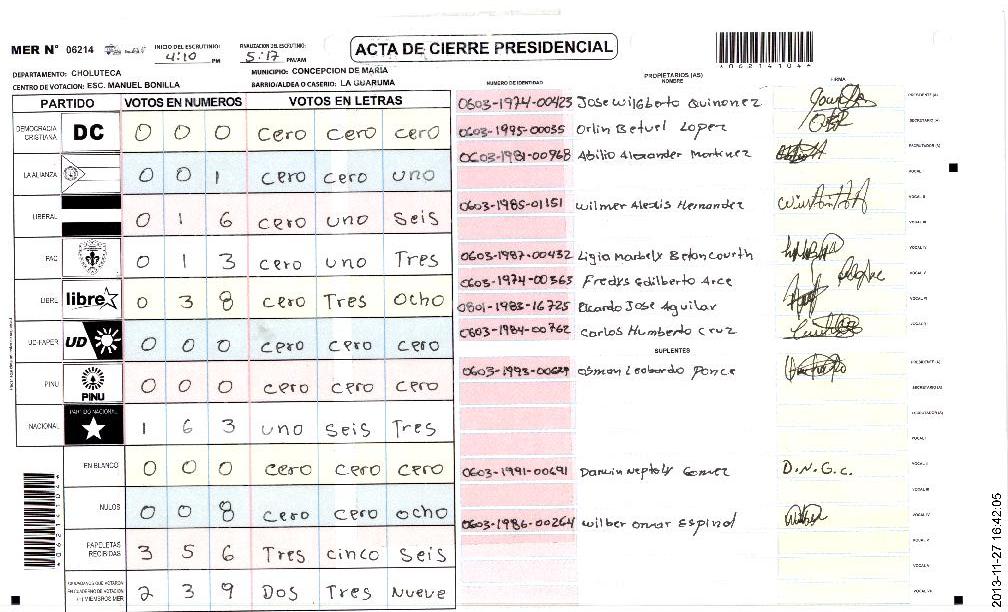 MER N° 06214
INICIO DEL ESCRUTINIO: 4:10 PM
FINALIZACION DEL ESCRUTINIO: 5:17 PM/AM
ACTA DE CIERRE PRESIDENCIAL
*06214104*
DEPARTAMENTO: CHOLUTECA
MUNICIPIO: CONCEPCION DE MARIA
CENTRO DE VOTACION: ESC. MANUEL BONILLA
BARRIO/ALDEA O CASERIO: LA GUARUMA
PARTIDO VOTOS EN NUMEROS VOTOS EN LETRAS
DEMOCRACIA CRISTIANA DC 0 0 0 cero cero cero
LA ALIANZA 0 0 1 cero cero uno
LIBERAL 0 1 6 cero uno seis
PAC 0 1 3 cero uno Tres
LIBRE libre 0 3 8 cero Tres ocho
UD-FAPER UD 0 0 0 cero cero cero
PINU PINU 0 0 0 cero cero cero
NACIONAL PARTIDO NACIONAL 1 6 3 uno seis Tres
EN BLANCO 0 0 0 cero cero cero
NULOS 0 0 8 cero cero ocho
PAPELETAS RECIBIDAS 3 5 6 Tres cinco seis
CIUDADANOS QUE VOTARON EN CUADERNO DE VOTACION (+) MIEMBROS MER 2 3 9 Dos Tres Nueve
NUMERO DE IDENTIDAD
PROPIETARIOS (AS)
NOMBRE
FIRMA
0603-1974-00423 Jose Wilgberto Quinonez PRESIDENTE (A)
0603-1995-00035 Orlin Betuel Lopez SECRETARIO (A)
0603-1981-00968 Abilio Alexander Martinez ESCRUTADOR (A)
VOCAL I
0603-1985-01151 Wilmer Alexis Hernandez VOCAL II
VOCAL III
0603-1987-00432 Ligia Maribely Betancourth VOCAL IV
0603-1974-00365 Fredys Edilberto Arce VOCAL V
0801-1983-16725 Ricardo Jose Aguilar VOCAL VI
0603-1984-00762 Carlos Humberto Cruz
SUPLENTES
0603-1993-00624 Osman Leobardo Ponce PRESIDENTE (A)
SECRETARIO (A)
ESCRUTADOR (A)
VOCAL I
0603-1991-00691 Darwin Neptaly Gomez D.N.G.c. VOCAL II
VOCAL III
0603-1986-00264 Wilber Omar Espinol VOCAL IV
VOCAL V
VOCAL VI
VOCAL VII
2013-11-27 16:42:05